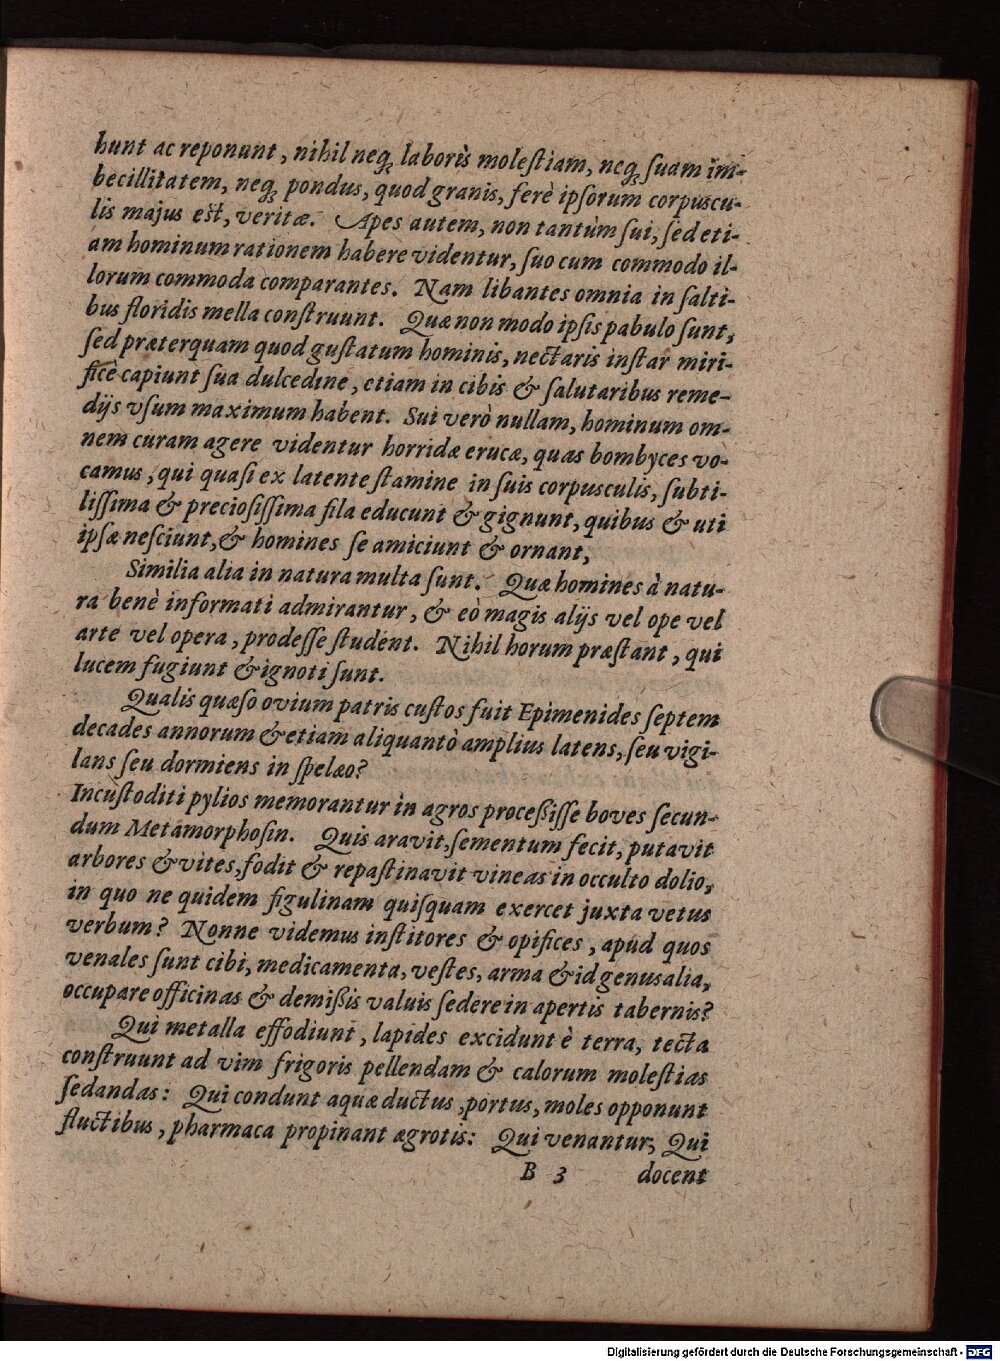 hunt ac reponunt, nihil neq; laboris molestiam, neq; suam im-
becillitatem, neq; pondus, quod granis, ferè ipsorum corpuscu-
lis majus est, veritæ. Apes autem, non tantùm sui, sed eti-
am hominum rationem habere videntur, suo cum commodo il-
lorum commoda comparantes. Nam libantes omnia in salti-
bus floridis mella construunt. Quæ non modo ipsis pabulo sunt,
sed præterquam quod gustatum hominis, nectaris instar miri-
ficè capiunt sua dulcedine, etiam in cibis & salutaribus reme-
dijs vsum maximum habent. Sui verò nullam, hominum om-
nem curam agere videntur horridæ erucæ, quas bombyces vo-
camus, qui quasi ex latente stamine in suis corpusculis, subti-
lissima & preciosissima fila educunt & gignunt, quibus & uti
ipsæ nesciunt, & homines se amiciunt & ornant,
Similia alia in natura multa sunt. Quæ homines à natu-
ra benè informati admirantur, & eò magis alijs vel ope vel
arte vel opera, prodesse student. Nihil horum præstant, qui
lucem fugiunt & ignoti sunt.
Qualis quæso ovium patris custos fuit Epimenides septem
decades annorum & etiam aliquantò amplius latens, seu vigi-
lans seu dormiens in spelæo?
Incustoditi pylios memorantur in agros processisse boves secun-
dum Metamorphosin. Quis aravit, sementum fecit, putavit
arbores & vites, fodit & repastinavit vineas in occulto dolio,
in quo ne quidem figulinam quisquam exercet juxta vetus
verbum? Nonne videmus institores & opifices, apud quos
venales sunt cibi, medicamenta, vestes, arma & id genus alia,
occupare officinas & demissis valuis sedere in apertis tabernis?
Qui metalla effodiunt, lapides excidunt è terra, tecta
construunt ad vim frigoris pellendam & calorum molestias
sedandas: Qui condunt aquæ ductus, portus, moles opponunt
fluctibus, pharmaca propinant ægrotis: Qui venantur; Qui
B 3 docent
Digitalisierung gefördert durch die Deutsche Forschungsgemeinschaft - DFG